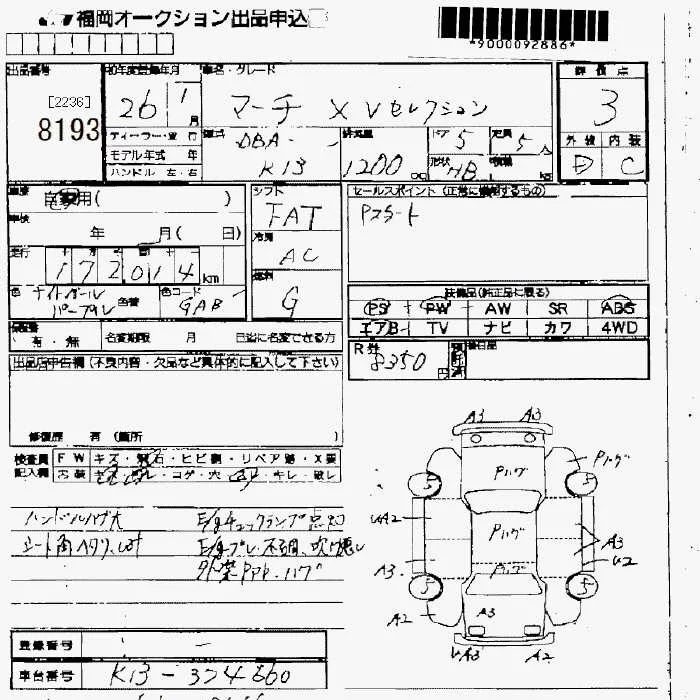 福岡オークション出品申込
*9000092886*
出品番号 初年度登録年月 車名・グレード 評価点
[2236]
8193
26 1月 マーチ X Vセレクション 3
ディーラー・並行 型式 DBA- 排気量 ドア 5 定員 5人 外装 内装
モデル年式 年 K13 1200cc 形状 HB 積載 kg D C
ハンドル 左・右
車歴 シフト セールスポイント(正常に機能するもの)
自家用( ) FAT Pスタート
車検 冷房
年 月( 日) AC
走行 燃料
172014km G
色 ナイトベール パープル 色替 色コード GAB 装備品(純正品に限る)
PS PW AW SR ABS
エアB TV ナビ カワ 4WD
保証書 有・無 名変期限 月 日迄に名変できる方 R券 8350円 後日品
出品店申告欄(不良内容・欠品など具体的に記入して下さい)
修復歴 有(箇所
検査員記入欄 FW キズ・飛石・ヒビ割・リペア跡・X要
内装 キズ・スレ・コゲ・穴・キレ・破レ
A3 A3
Pハゲ Pハゲ
5 5
ハンドルハゲ大 E/gチェックランプ点灯
シート角ヘタリ、 E/gブレ、不調、吹け悪し
外装PPP・ハゲ
UA2 Pハゲ A3
A3 Pハゲ U2
5 5
A2 A3 A2
UA3 A2
登録番号 -
車台番号 K13-374860